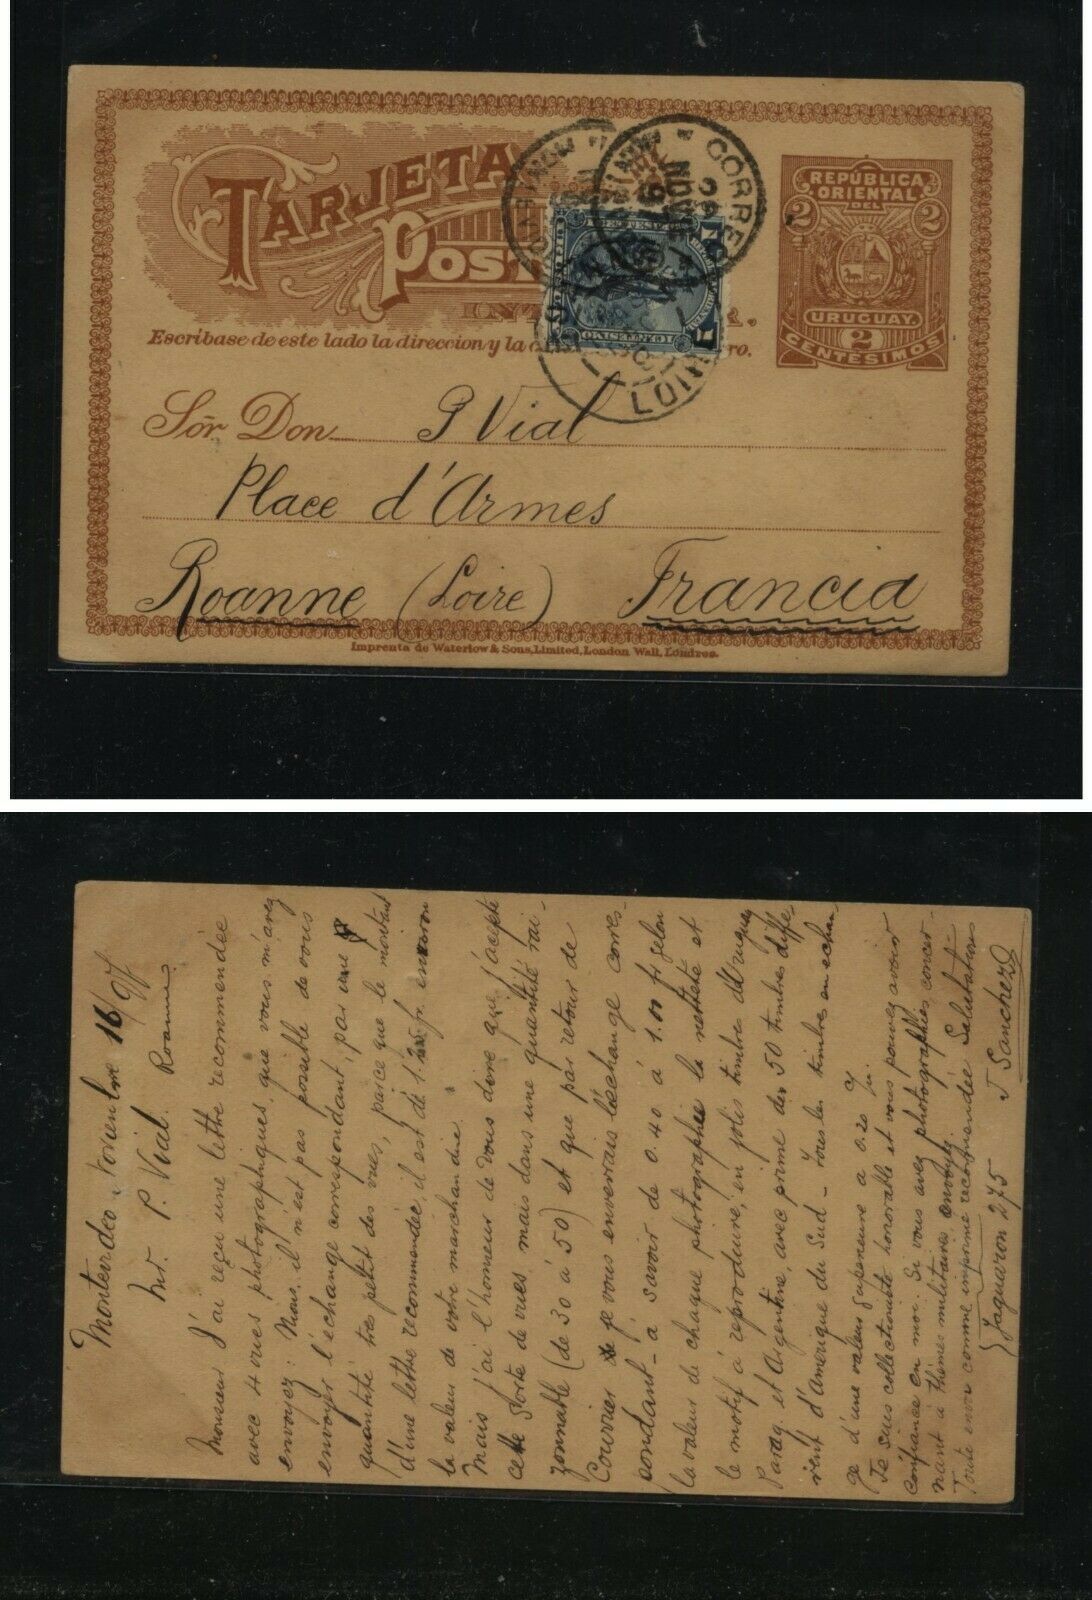 TARJETA
POST
REPÚBLICA
ORIENTAL
DEL
2 2
URUGUAY
2
CENTÉSIMOS
CORREO
Escríbase de este lado la direccion y la ro.
Sór Don P Vial
Place d'Armes
Roanne (Loire) Francia
Imprenta de Waterlow & Sons, Limited, London Wall, Londres.
Montevideo Noviembre 16/97
Mr. P. Vial Roanne
Monsieur J'ai reçu une lettre recommendée
avec 4 vues photographiques, que vous m'avez
envoyez. Mais, il n'est pas possible de vous
envoyer l'échange correspondant, par une
quantité tres petit des vues, parce que le montant
d'une lettre recommendée, il est de 1. fr. environ
la valeur de votre marchandise
Mais j'ai l'honneur de vous dire que j'accepte
cette sorte de vues, mais dans une quantité rai-
zonnable (de 30 à 50) et que par retour de
Courrier je vous enverrais l'échange corres-
pondant - à savoir de 0.40 à 1.00 fr selon
la valeur de chaque photographie la netteté et
le motif à reproduire, en jolis timbres d'Uruguay
Parag. et Argentine, avec prime des 50 timbres diffe-
rent d'Amerique du Sud - Tous les timbres en echan-
ge d'une valeur superieure a 0.20
Je suis collectioniste honorable et vous pouvez avoir
confiance en moi. Si vous avez photographies concer-
nant à thèmes militaires envoyez.
Toute envoi comme imprimé recommendée Salutations
Yaguaron 275 J Sanchez